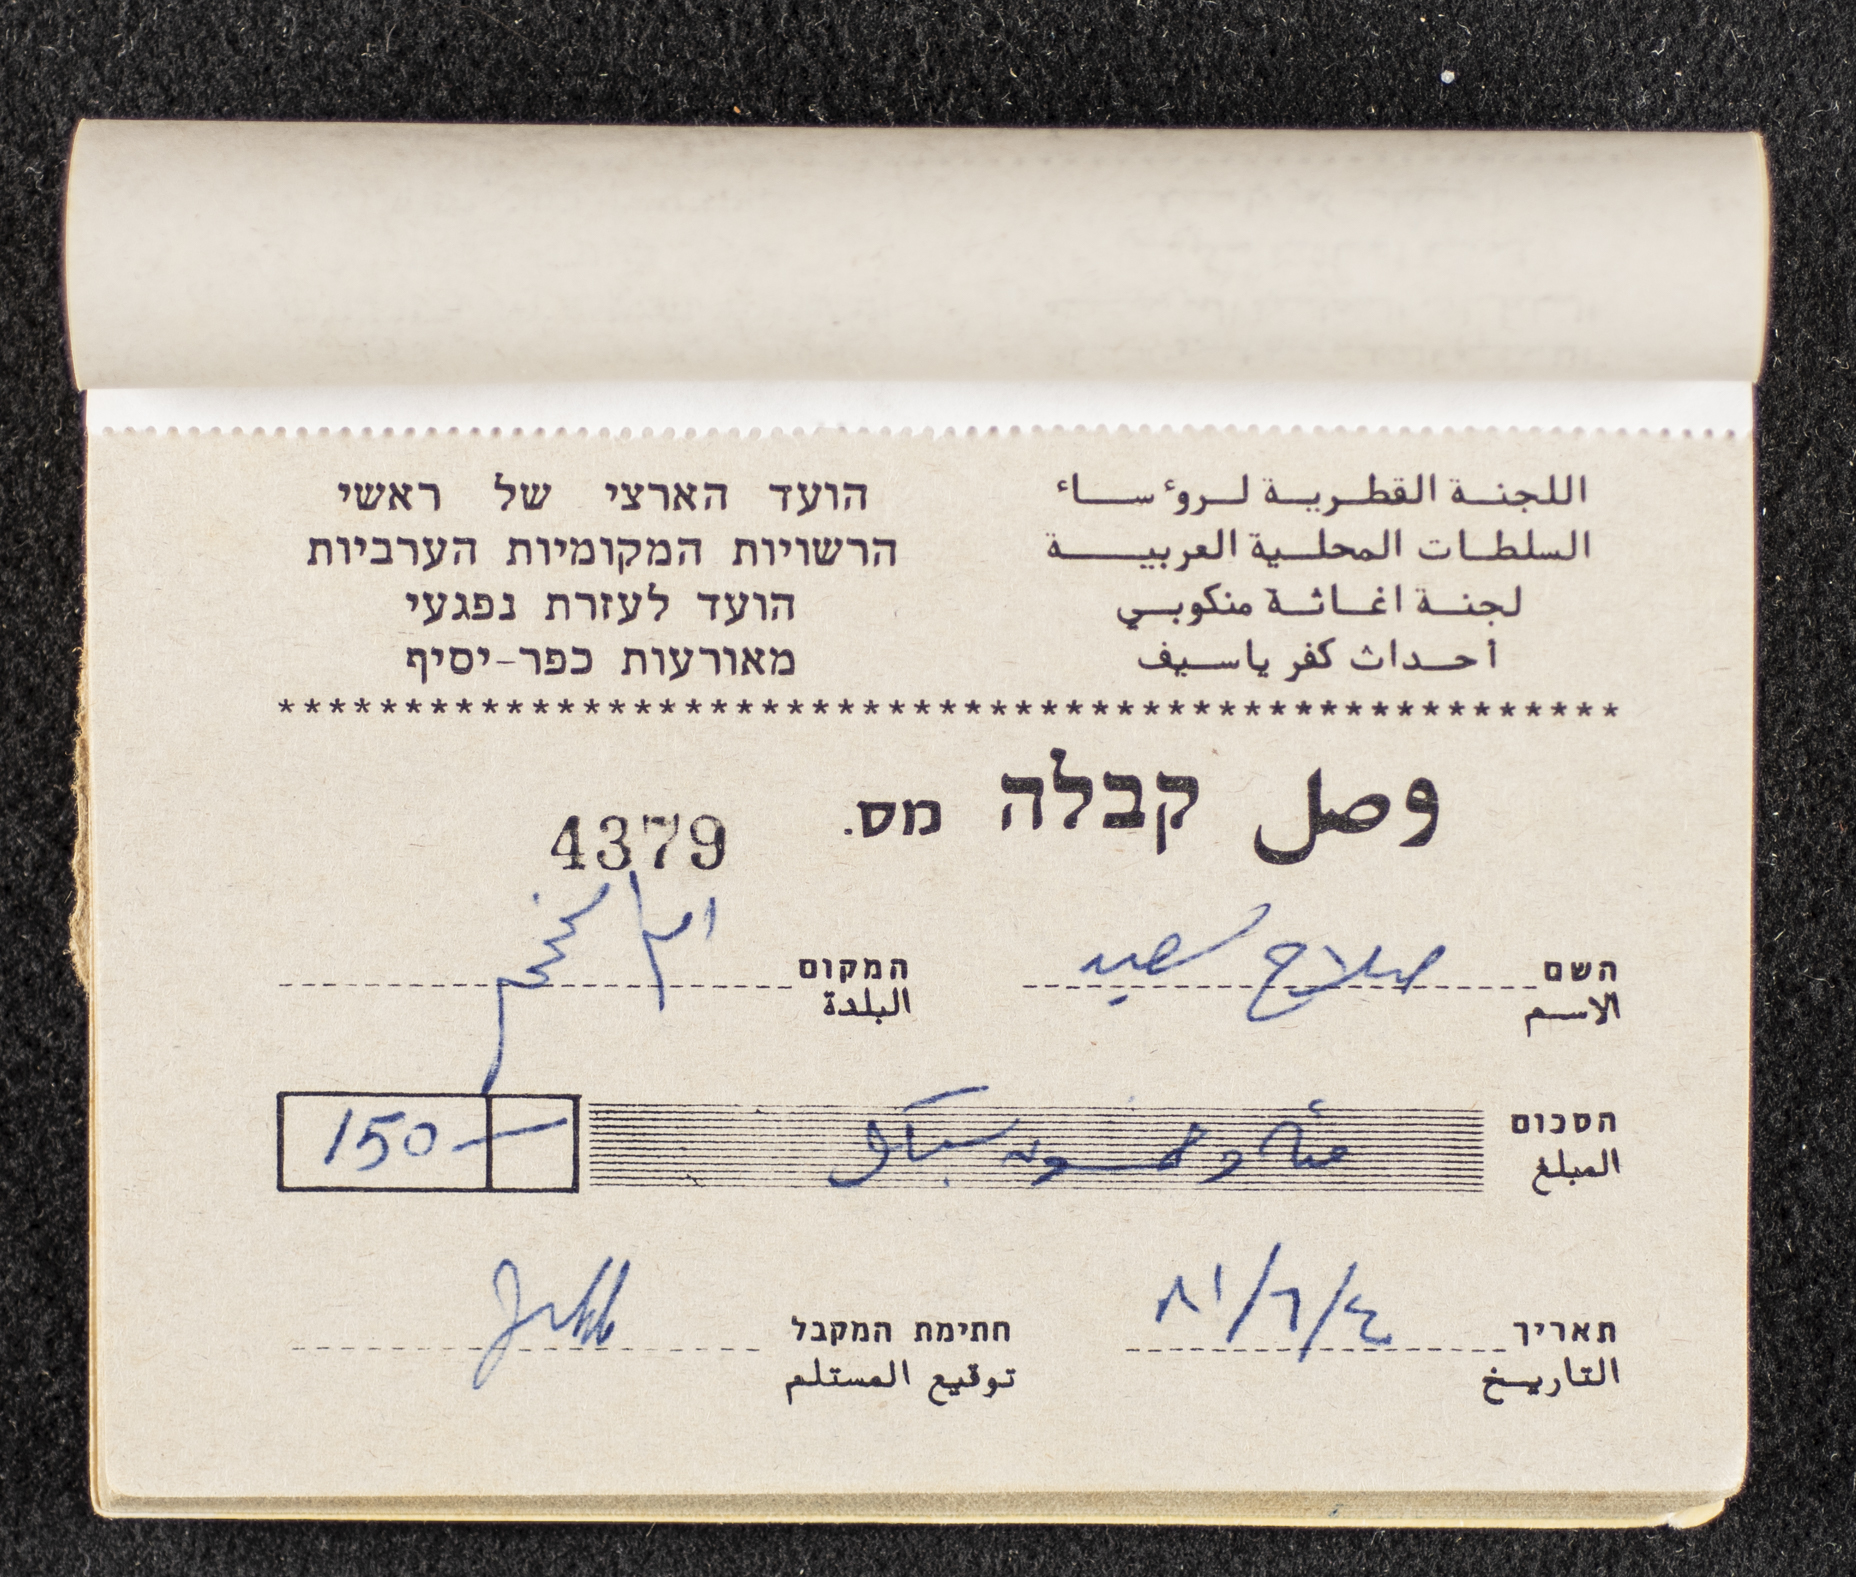 اللجنة القطرية لروءساء
السلطات المحلية العربية
لجنة اغاثة منكوبي
أحداث كفر ياسيف
הועד הארצי של ראשי
הרשויות המקומיות הערביות
הועד לעזרת נפגעי
מאורעות כפר-יסיף
****************************************************
وصل קבלה מס. 4379
השם صلاح سعيد המקום ام الفحم
الاسم البلدة
הסכום مئة وخمسون شيكل 150-
المبلغ
תאריך ٤/٦/٨١ חתימת המקבל
التاريخ توقيع المستلم